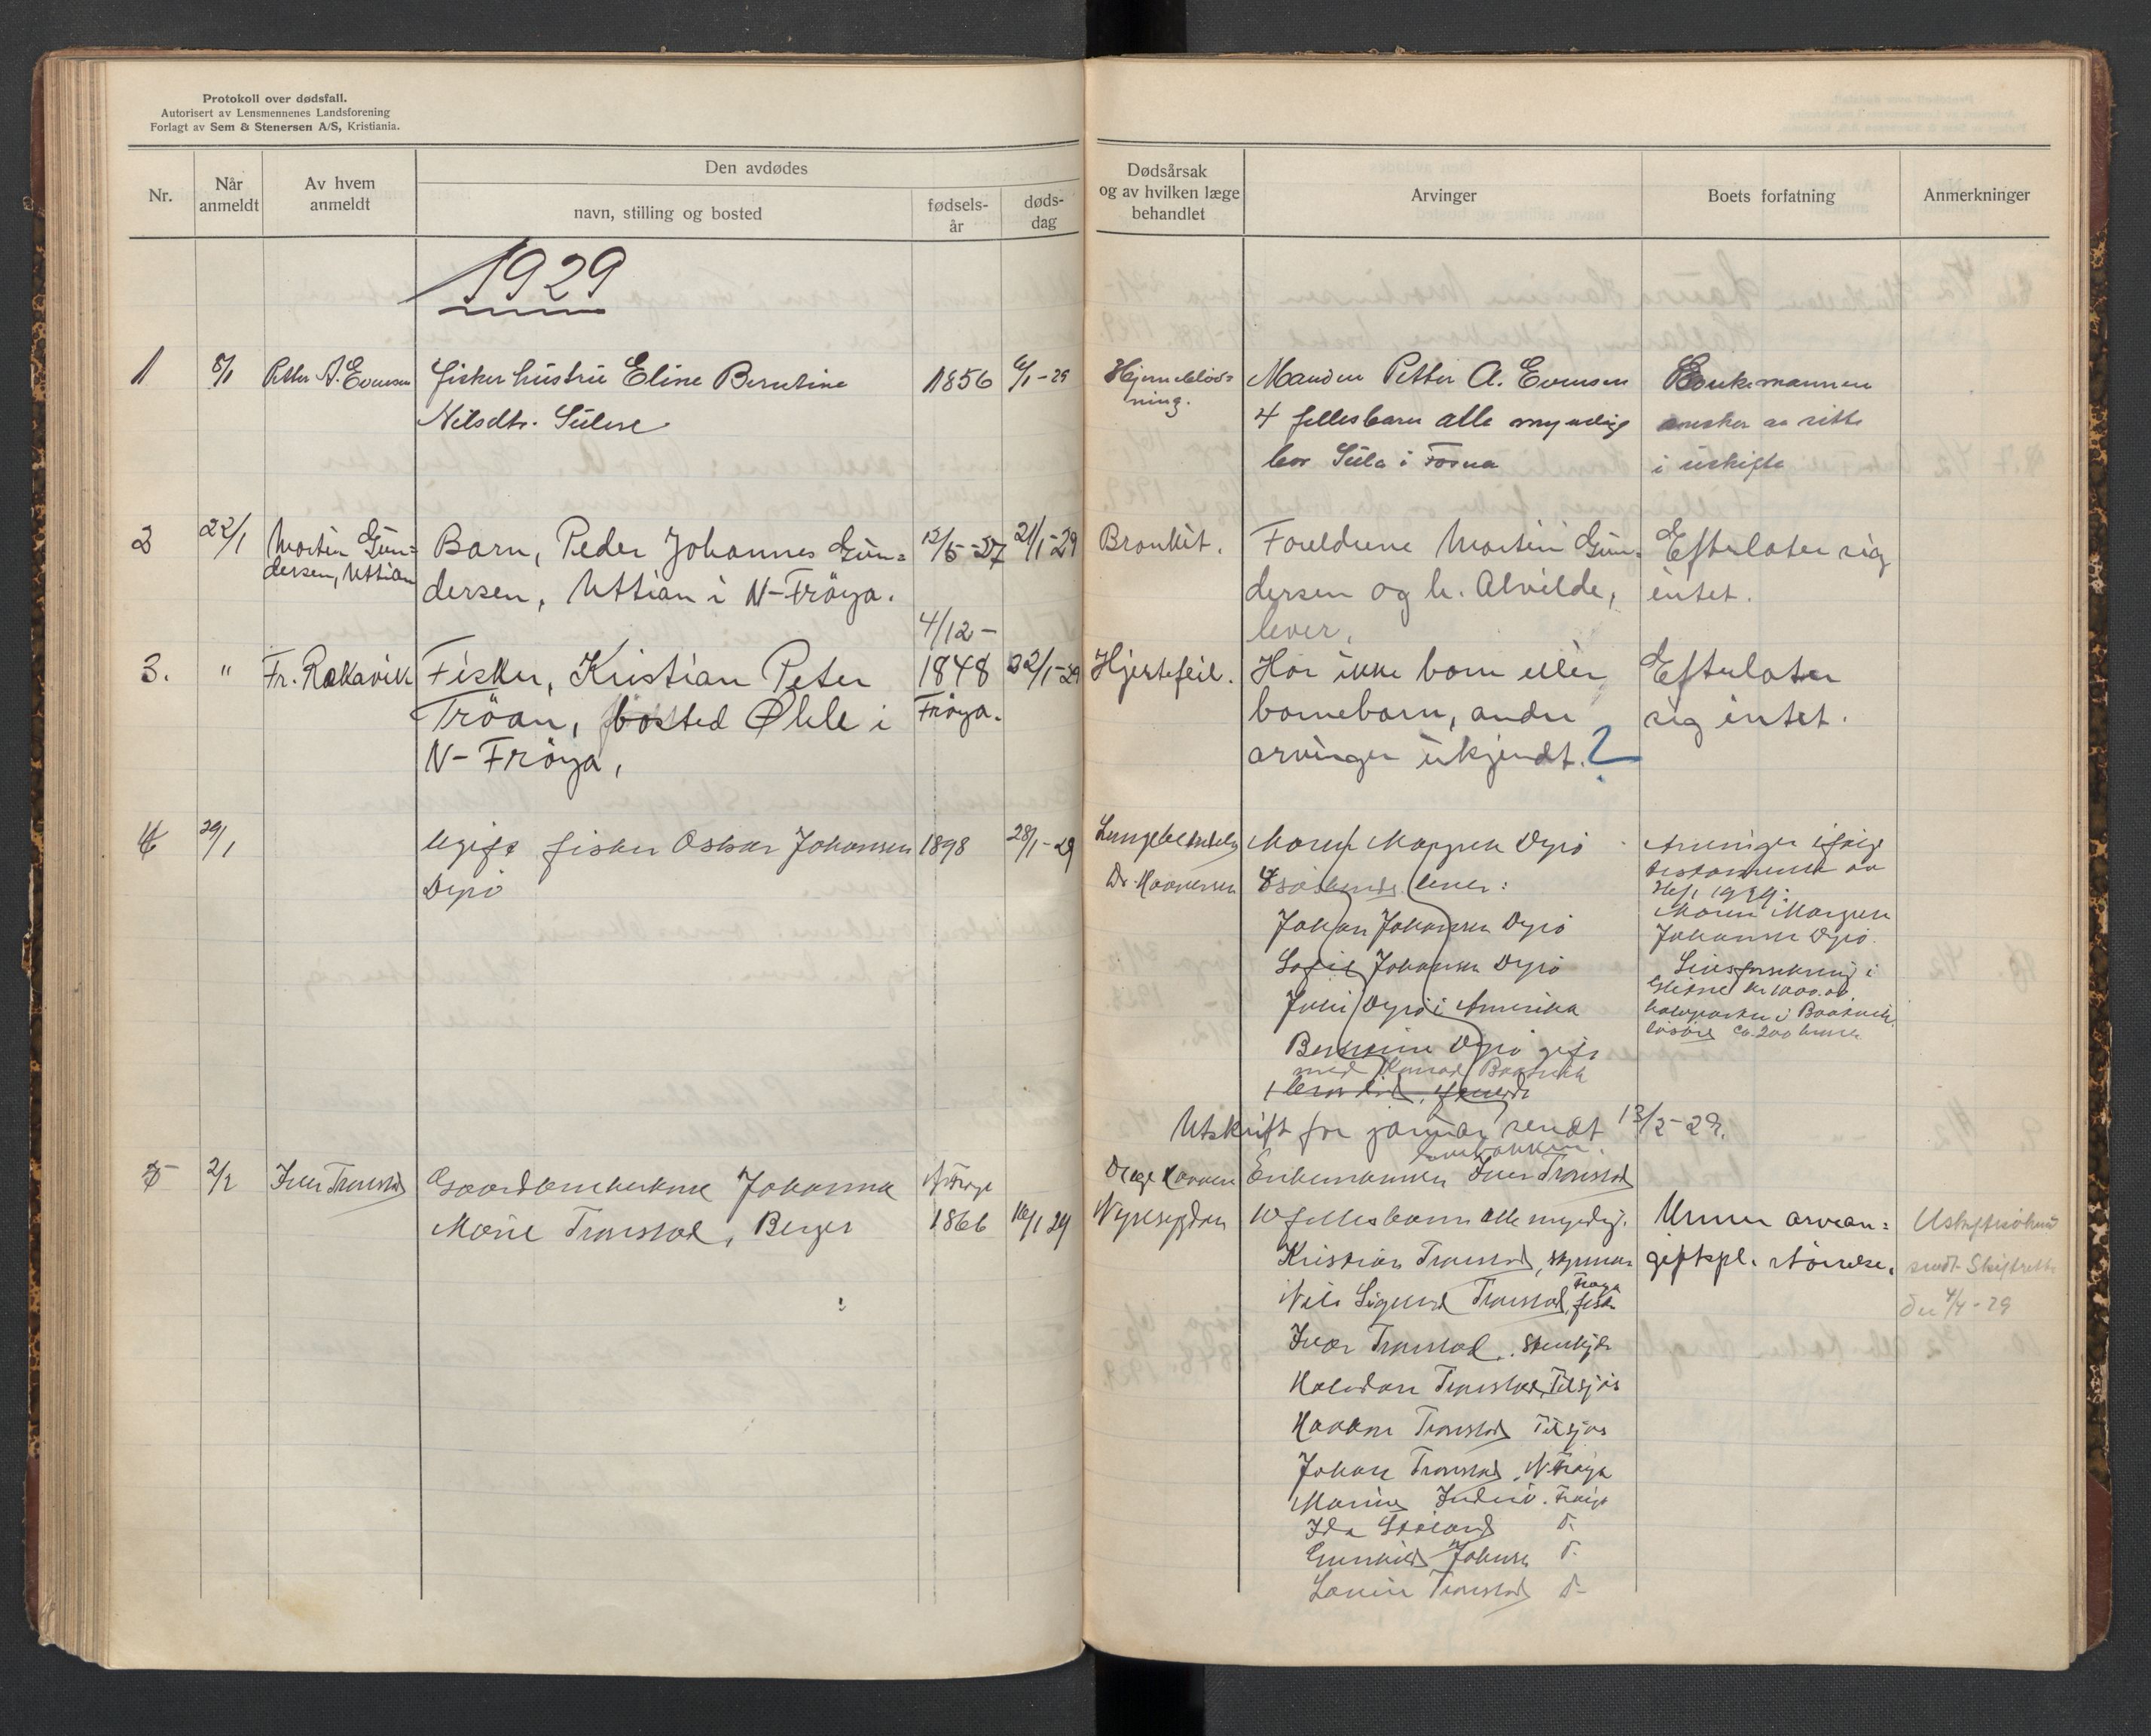 Protokoll over dødsfall.
Autorisert av Lensmennenes Landsforening
Forlagt av Sem & Stenersen A/S, Kristiania.
Nr.
Når anmeldt
Av hvem anmeldt
Den avdødes
navn, stilling og bosted
fødsels-år
døds-dag
Dødsårsak og av hvilken læge behandlet
Arvinger
Boets forfatning
Anmerkninger
1929
1 8/1 Petter A. Evensen fisker hustru Eline Berntine 1856 6/1-29
Nilsdtr. Sulen
Hjerneblød=
ning.
Manden Petter A. Evensen
4 fellesbarn alle myndig
bor Sula i Fosna
Enkemannen
ønsker at sitte
i uskifte
2 22/1 Morten Gun=
dersen, Uttian
Barn, Peder Johannes Gun=
dersen, Uttian i N-Fröya.
12/5-27 21/1-29
Bronkit.
Foreldrene Morten Gun=
dersen og h. Alvilde,
lever.
Efterlater sig
intet.
3. " Fr. Rakavik Fisker, Kristian Peter
Tröan, bosted Øhle i
N-Fröya,
4/12-
1848
Fröya.
22/1-29
Hjertefeil.
Har ikke barn eller
barnebarn, andre
arvinger ukjendt. ?
Efterlater
sig intet.
4 29/1 Ugift fisker Oskar Johansen 1898 28/1-29
Dyrö
Lungebetendelse
Dr.
Moren Margrete Dyrö
søskende lever:
Johan Johansen Dyrö
Sofie Johansen Dyrö
Dyrö i Amerika
Dyrö gift
med Konrad
Arvinger ifölge
testamente av
Moren Margrete
Johansen Dyrö.
Livsforsikring i
kr 1000.00
i
løsöre ca. 200 kroner
Utskrift for januar sendt 13/2-29.
5 2/2 Iver Tronstad Gaardbrukerkone Johanna
Marie Tronstad, Bergen
N. Fröya
1866 16/1 29
Nyresygdom
Enkemannen Iver Tronstad
10 fellesbarn alle myndig.
Kristian Tronstad,
Nils Sigurd Tronstad, fisker
Fröya
Ivar Tronstad, Stenkjer
Halvdan Tronstad, Titsjös
Haakon Tronstad Titsjös
Johan Tronstad, N. Fröya
Marine Fröya
Ida d.
Gunhild Johnsen d.
Lovise Tronstad d-
Under arvean=
giftspl. störrelse.
sendt Skifteretten
den 4/4-29